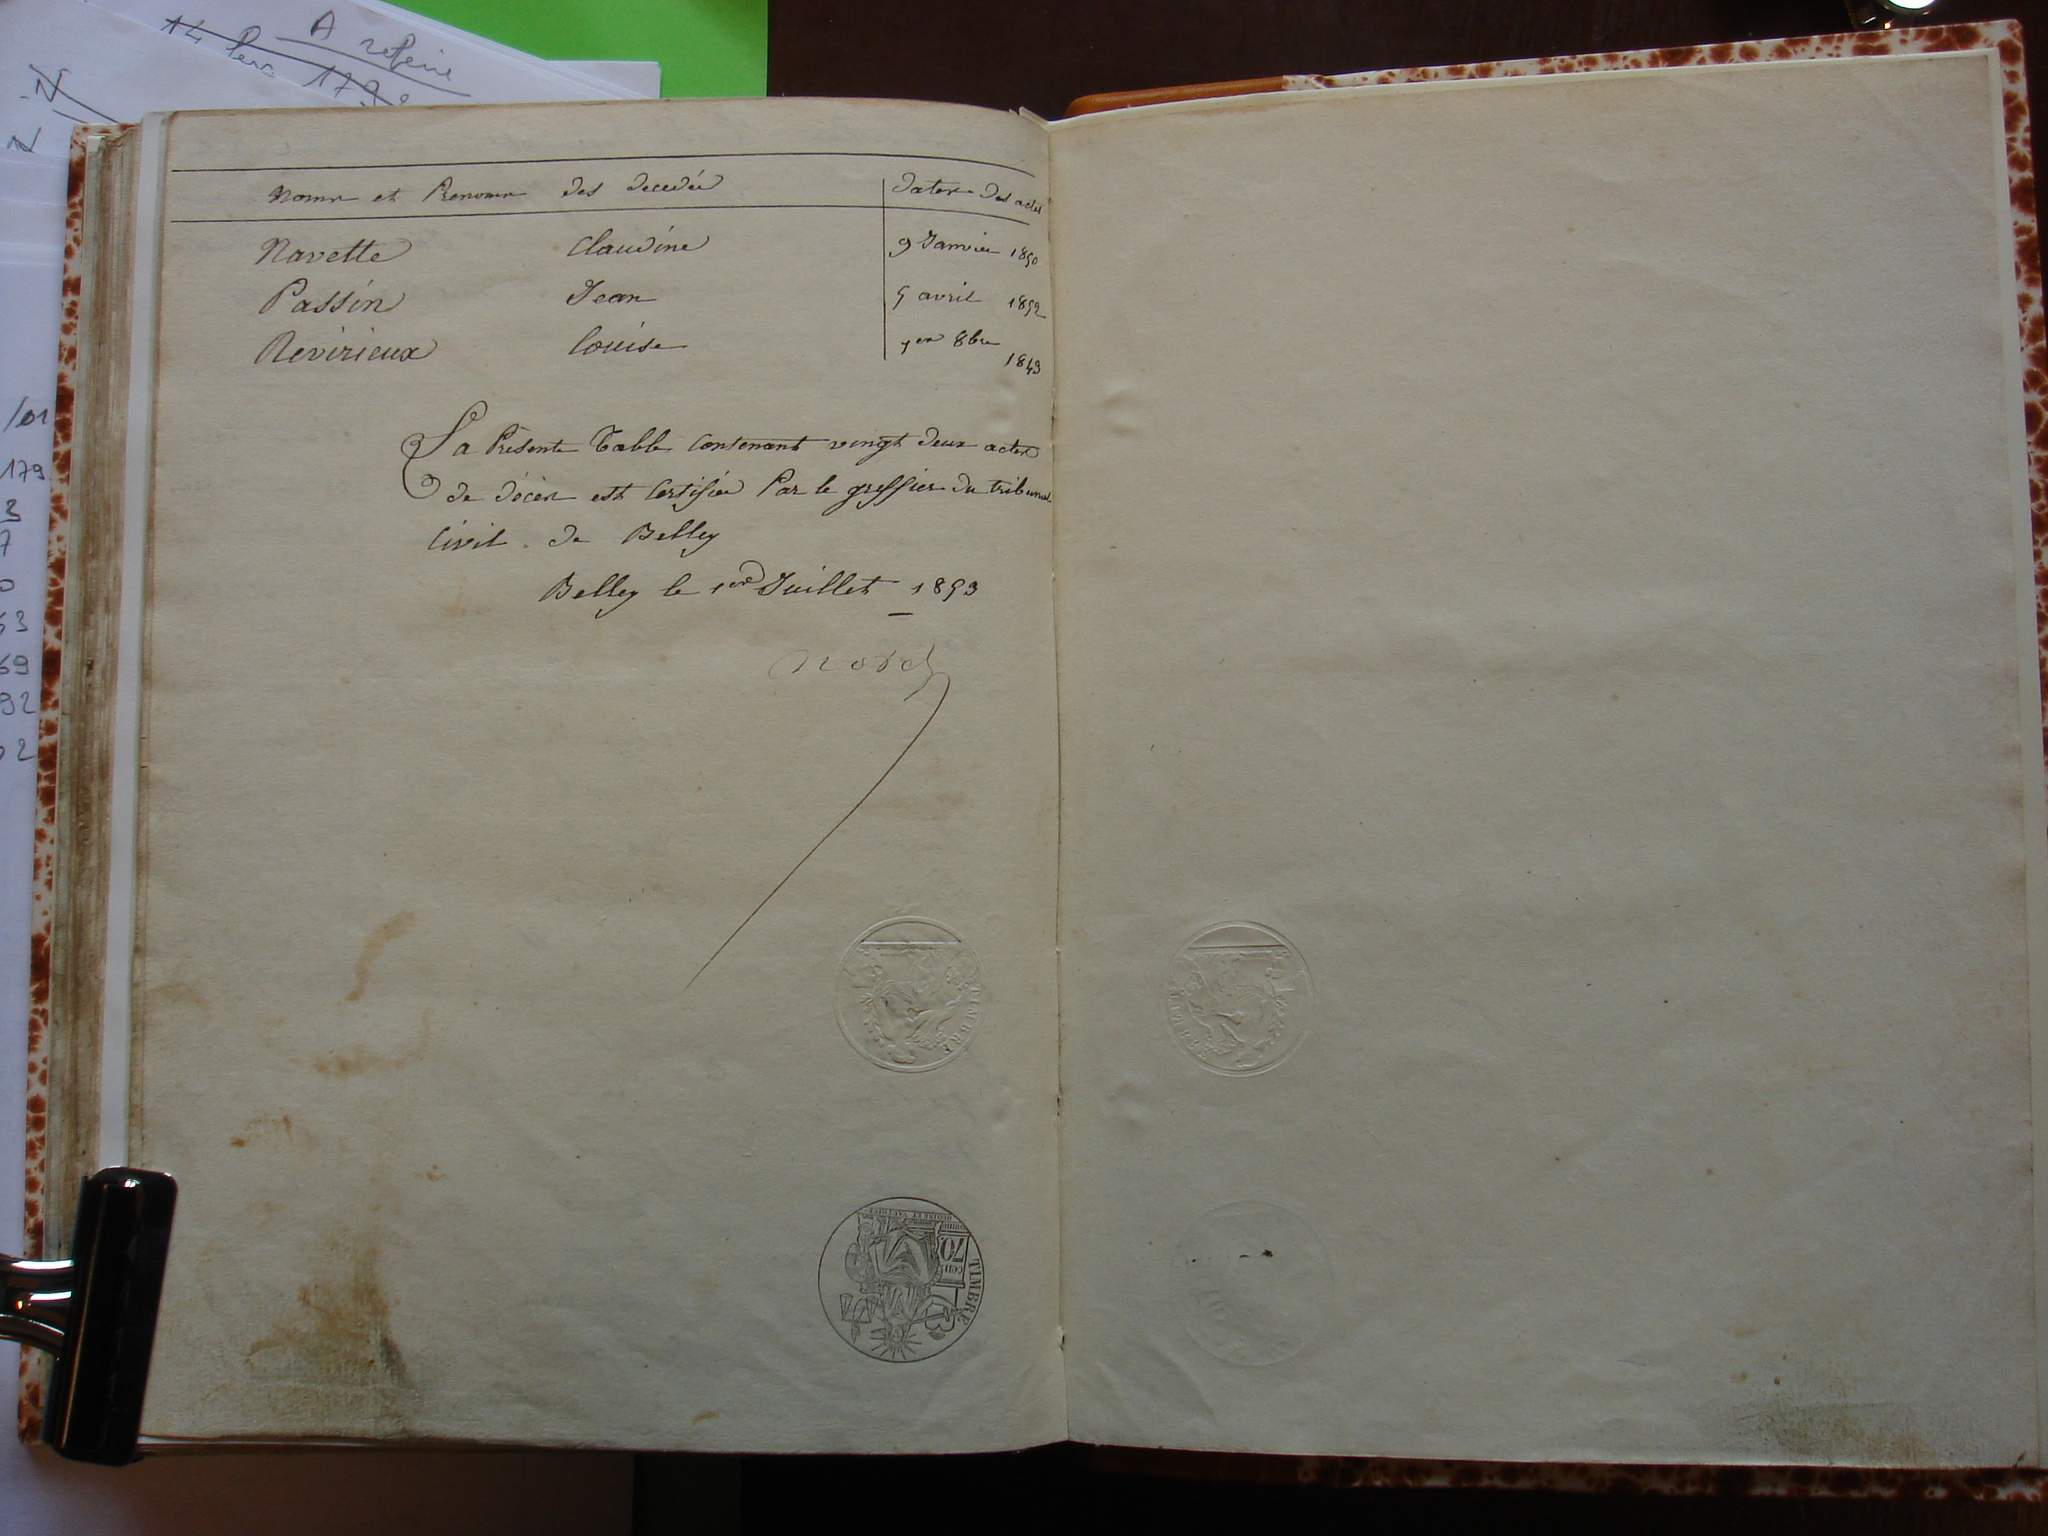 A refaire
14
179
Noms et Prenoms des decedés
Dates des actes
Navette Claudine 9 Janvier 1850
Passin Jean 5 avril 1852
Revirieux Louise 1er 8bre 1849
La Présente Table Contenant vingt deux actes
de décès est Certifiée Par le greffier du tribunal
Civil de Belley
Belley le 1er Juillet 1853
TIMBRE
TIMBRE
70
CEN
TIMBRE
/01
179
3
7
0
63
69
92
02